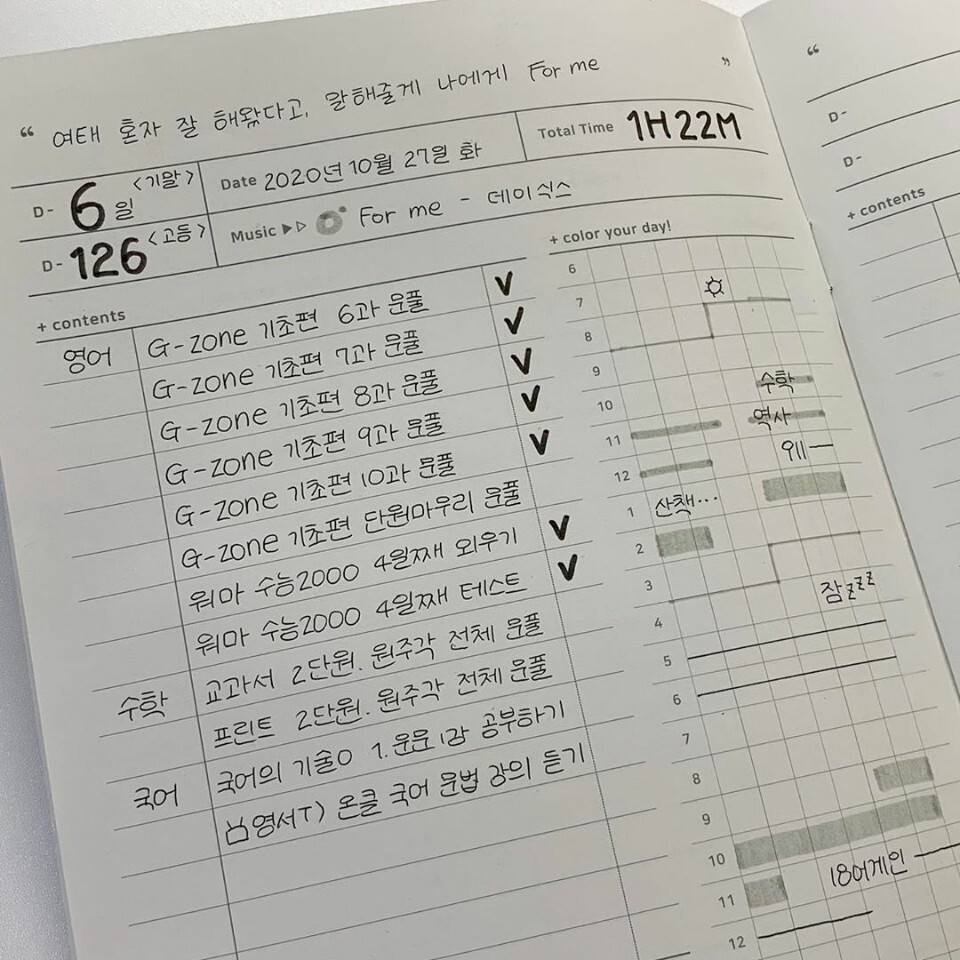 “ 여태 혼자 잘 해왔다고, 말해줄게 나에게 For me ”
D- 6일 <기말>
Date 2020년 10월 27일 화
Total Time 1H 22M
D- 126 <고등>
Music ▶▷ For me - 데이식스
+ contents
영어 G-zone 기초편 6과 문풀 ✓
G-zone 기초편 7과 문풀 ✓
G-zone 기초편 8과 문풀 ✓
G-zone 기초편 9과 문풀 ✓
G-zone 기초편 10과 문풀 ✓
G-zone 기초편 단원마무리 문풀
워마 수능2000 4일째 외우기 ✓
워마 수능2000 4일째 테스트 ✓
수학 교과서 2단원. 원주각 전체 문풀
프린트 2단원. 원주각 전체 문풀
국어 국어의 기술0 1. 운문 1강 공부하기
영서T) 온클 국어 문법 강의 듣기
+ color your day!
6
7
8
9 수학
10 역사
11
12
1 산책...
2
3
4 잠zzz
5
6
7
8
9
10
11 18어게인
12
“
D-
D-
+ contents